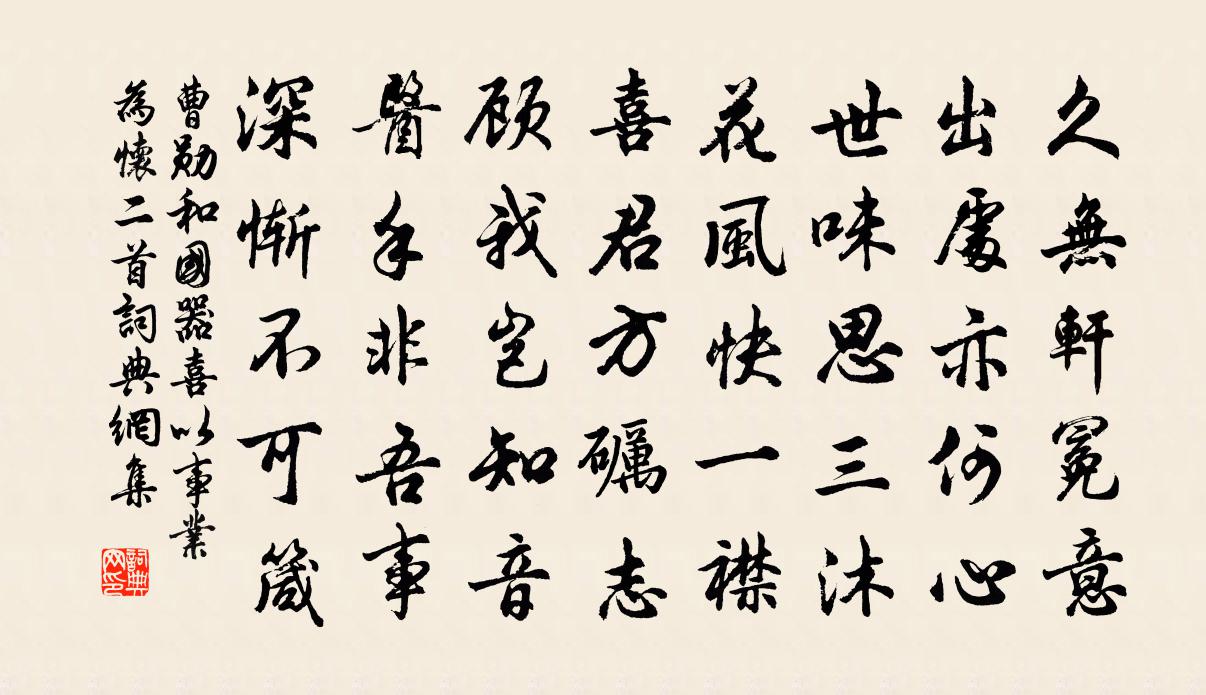 久無軒冕意
出處亦何心
世味思三沐
花風快一襟
喜君方礪志
顧我豈知音
醫手非吾事
深慚不可箴
曹勛和國器喜以事業
為懷二首詞典網集
詞典
网印